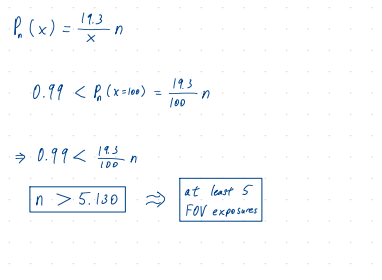 Pₙ(x) = 19.3/x n
0.99 < Pₙ(x=100) = 19.3/100 n
⇒ 0.99 < 19.3/100 n
n > 5.130 ≈> at least 5
FOV exposures